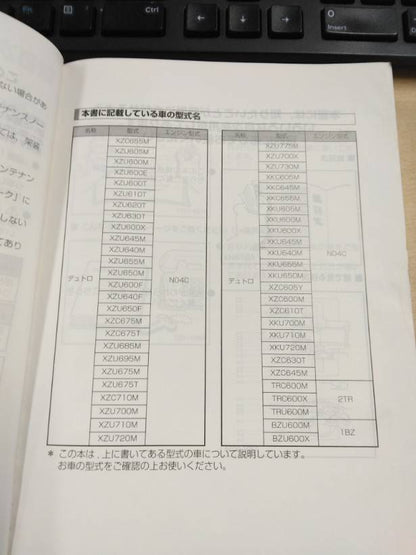 本書に記載している車の型式名
名称 型式 エンジン型式
XZC655M
XZU605M
XZU600M
XZU600E
XZU600T
XZU610T
XZU620T
XZU630T
XZU600X
XZU645M
XZU640M
XZU655M
デュトロ XZU650M N04C
XZU600F
XZU640F
XZU650F
XZC675M
XZC675T
XZU685M
XZU695M
XZU675M
XZU675T
XZC710M
XZU700M
XZU710M
XZU720M
名称 型式 エンジン型式
XZU775M
XZU700X
XZU730M
XKC605M
XKC645M
XKC655M
XKU605M
XKU600M
XKU600X
XKU645M
XKU640M N04C
XKU655M
デュトロ XKU650M
XZC605Y
XZC600M
XZC610T
XKU700M
XKU710M
XKU720M
XZC630T
XZC645M
TRC600M
TRC600X 2TR
TRU600M
BZU600M
BZU600X 1BZ
* この本は、上に書いてある型式の車について説明しています。
お車の型式をご確認の上お使いください。
ない場合があ
ナンスノー
では、架装
ンテナン
ーク」に
しない
てあり
Insert
Ctrl